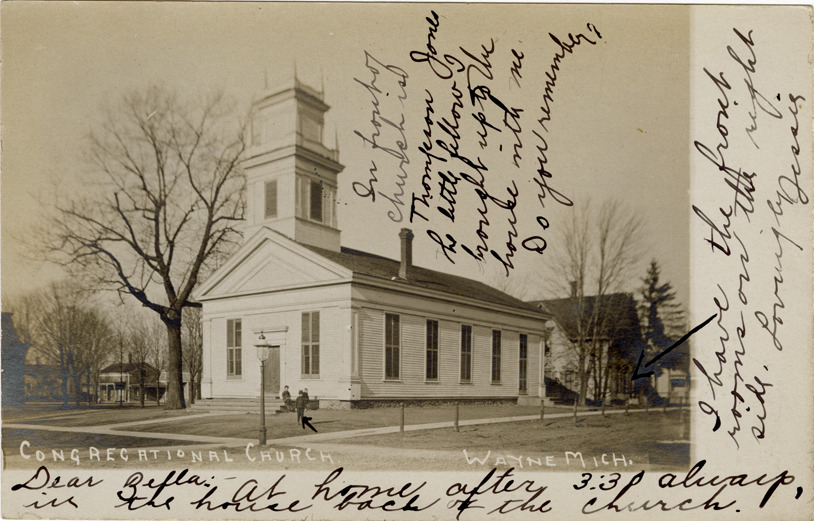 In front of
church is
Thompson Jones
the little fellow I
brought up to the
house with me.
Do you remember?
I have the front
rooms on the right
side. Lovingly Jessie
CONGREGATIONAL CHURCH.
WAYNE MICH.
Dear Bella:- At home after 3:30 always,
in the house back of the church.